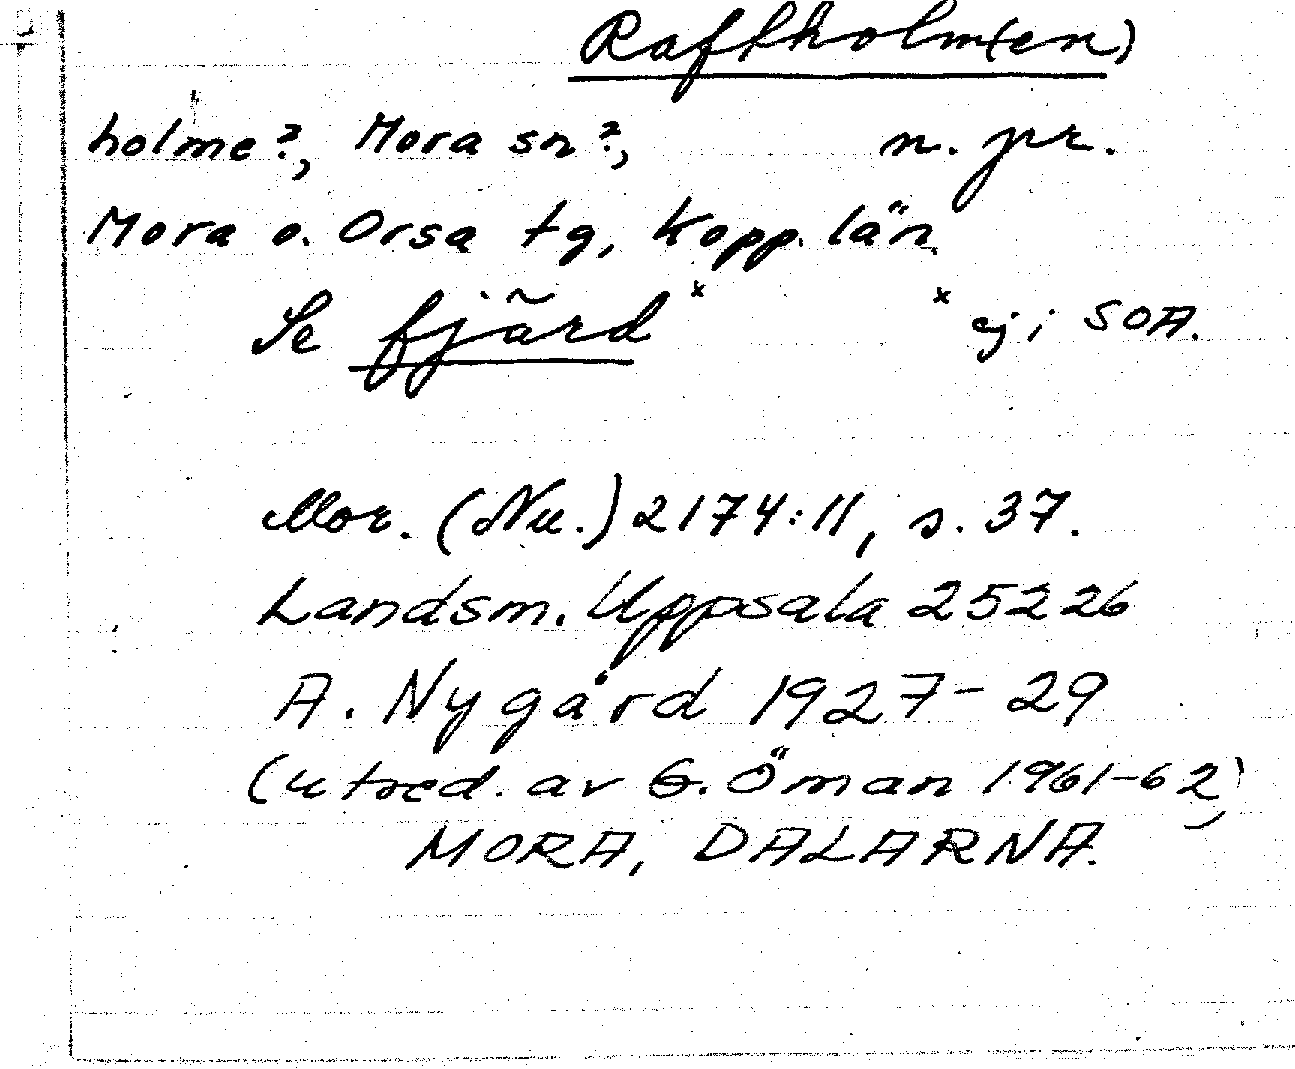 Raftholm(en)
holme?, Mora sn?, n. pr.
Mora o. Orsa tg, Kopp. län
Se fjärd x x ej i SOA.
Mor. (Nu.) 2174:11, s. 37.
Landsm. Uppsala 25226
A. Nygård 1927-29
(utred. av G. Öman 1961-62),
MORA, DALARNA.